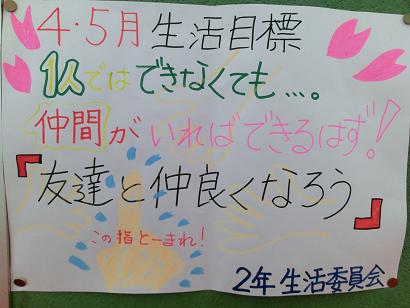 4・5月 生活目標
1人ではできなくても…。
仲間がいればできるはず!
『友達と仲良くなろう』
この指と一まれ!
2年 生活委員会